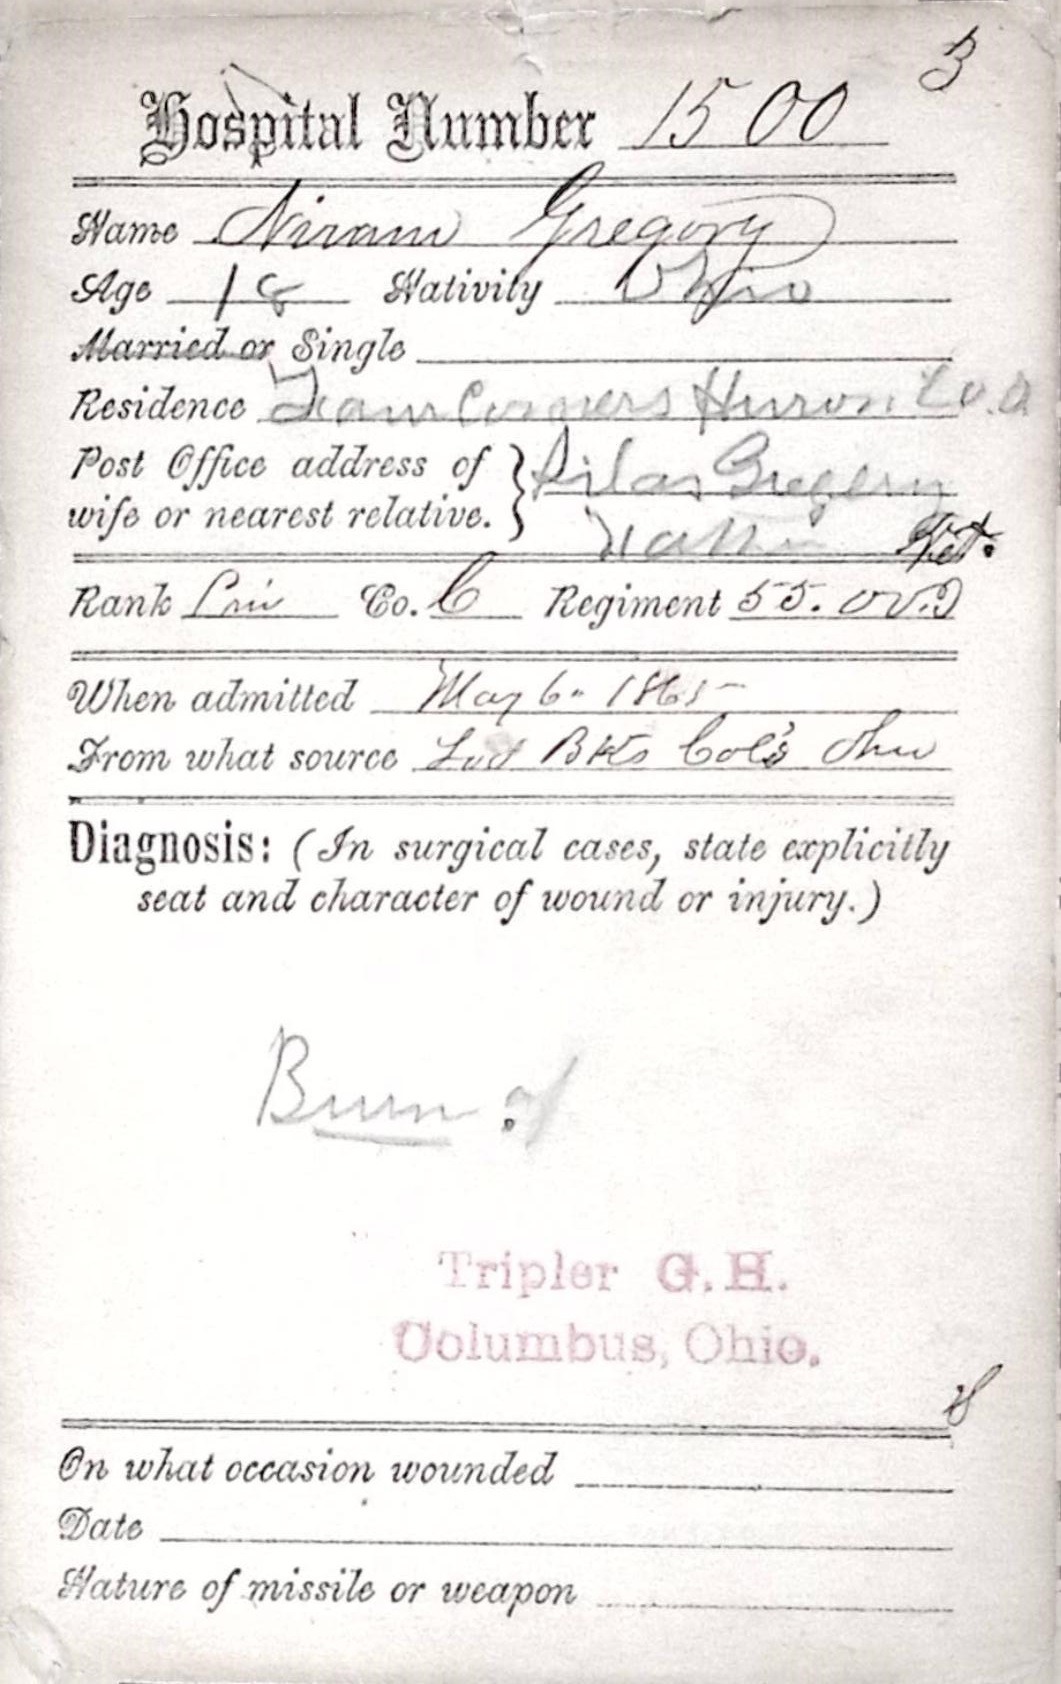 3
Hospital Number 1500
Name Niram Gregory
Age 18 Nativity Ohio
Married or Single
Residence Corners Huron Co. O
Post Office address of
wife or nearest relative. } Silas Gregory
Rank Priv Co. C Regiment 55. O.V.I
When admitted May 6. 1865
From what source Bks Col's Ohio
Diagnosis: (In surgical cases, state explicitly
seat and character of wound or injury.)
Burn of
Tripler G. H.
Columbus, Ohio.
On what occasion wounded
Date
Nature of missile or weapon